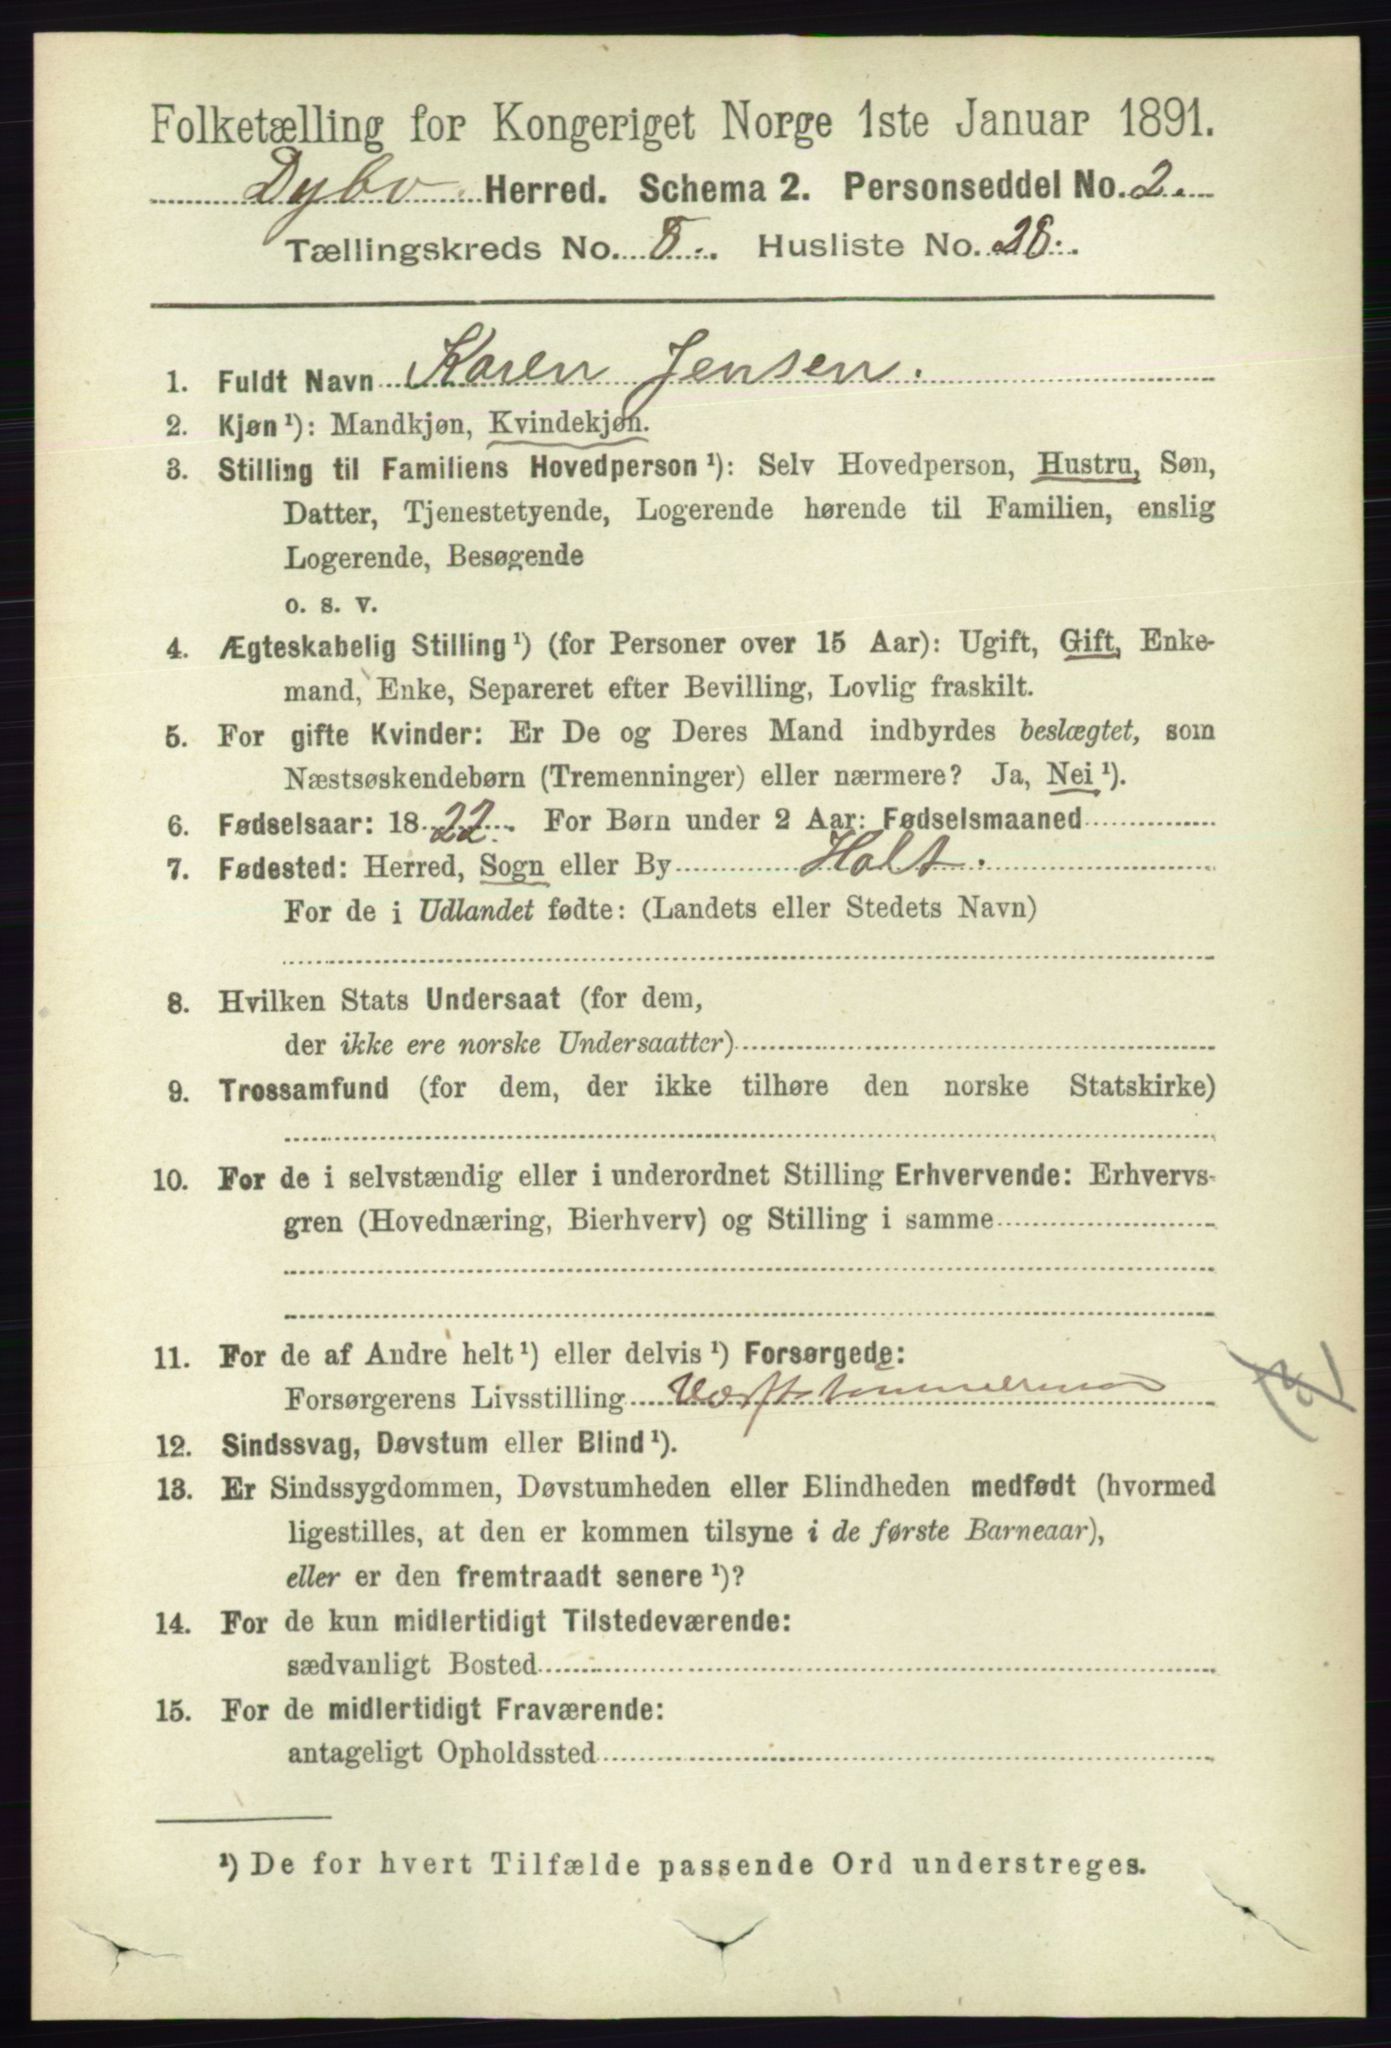 Folketælling for Kongeriget Norge 1ste Januar 1891.
Dybv. Herred. Schema 2. Personseddel No. 2.
Tællingskreds No. 8. Husliste No. 28.
1. Fuldt Navn Karen Jensen.
2. Kjøn¹): Mandkjøn, Kvindekjøn.
3. Stilling til Familiens Hovedperson¹): Selv Hovedperson, Hustru, Søn,
Datter, Tjenestetyende, Logerende hørende til Familien, enslig
Logerende, Besøgende
o. s. v.
4. Ægteskabelig Stilling¹) (for Personer over 15 Aar): Ugift, Gift, Enke-
mand, Enke, Separeret efter Bevilling, Lovlig fraskilt.
5. For gifte Kvinder: Er De og Deres Mand indbyrdes beslægtet, som
Næstsøskendebørn (Tremenninger) eller nærmere? Ja, Nei¹).
6. Fødselsaar: 1822. For Børn under 2 Aar: Fødselsmaaned
7. Fødested: Herred, Sogn eller By Holt.
For de i Udlandet fødte: (Landets eller Stedets Navn)
8. Hvilken Stats Undersaat (for dem,
der ikke ere norske Undersaatter)
9. Trossamfund (for dem, der ikke tilhøre den norske Statskirke)
10. For de i selvstændig eller i underordnet Stilling Erhvervende: Erhvervs-
gren (Hovednæring, Bierhverv) og Stilling i samme
11. For de af Andre helt¹) eller delvis¹) Forsørgede:
Forsørgerens Livsstilling Værftstømmermand
12. Sindssvag, Døvstum eller Blind¹).
13. Er Sindssygdommen, Døvstumheden eller Blindheden medfødt (hvormed
ligestilles, at den er kommen tilsyne i de første Barneaar),
eller er den fremtraadt senere¹)?
14. For de kun midlertidigt Tilstedeværende:
sædvanligt Bosted
15. For de midlertidigt Fraværende:
antageligt Opholdssted
¹) De for hvert Tilfælde passende Ord understreges.